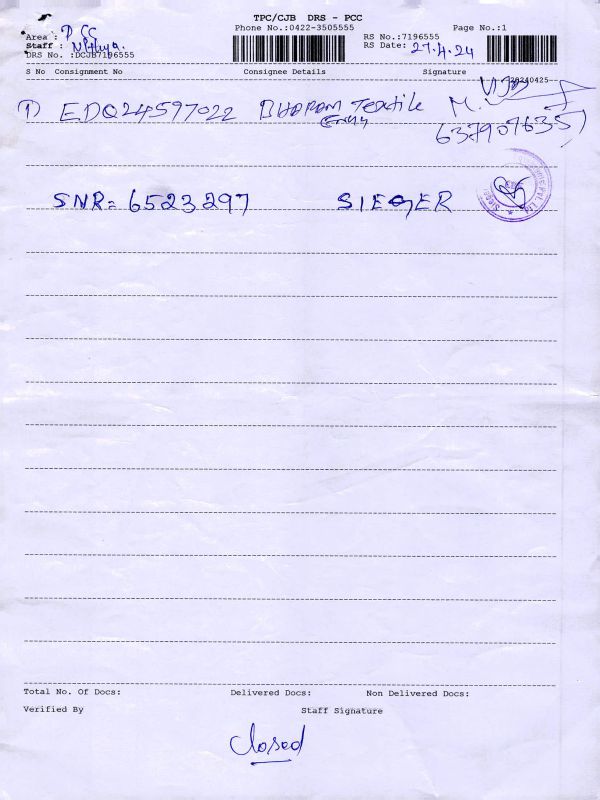 TPC/CJB DRS - PCC
Phone No.:0422-3505555 Page No.:1
Area : PCC RS No.:7196555
Staff : Nithya. RS Date: 27.4.24
DRS No. :DCJB7196555
S No Consignment No Consignee Details Signature
20240425
① EDQ24597022 Textile M.
6379076357
SNR= 6523297 SIEGER
Total No. Of Docs: Delivered Docs: Non Delivered Docs:
Verified By Staff Signature
Closed